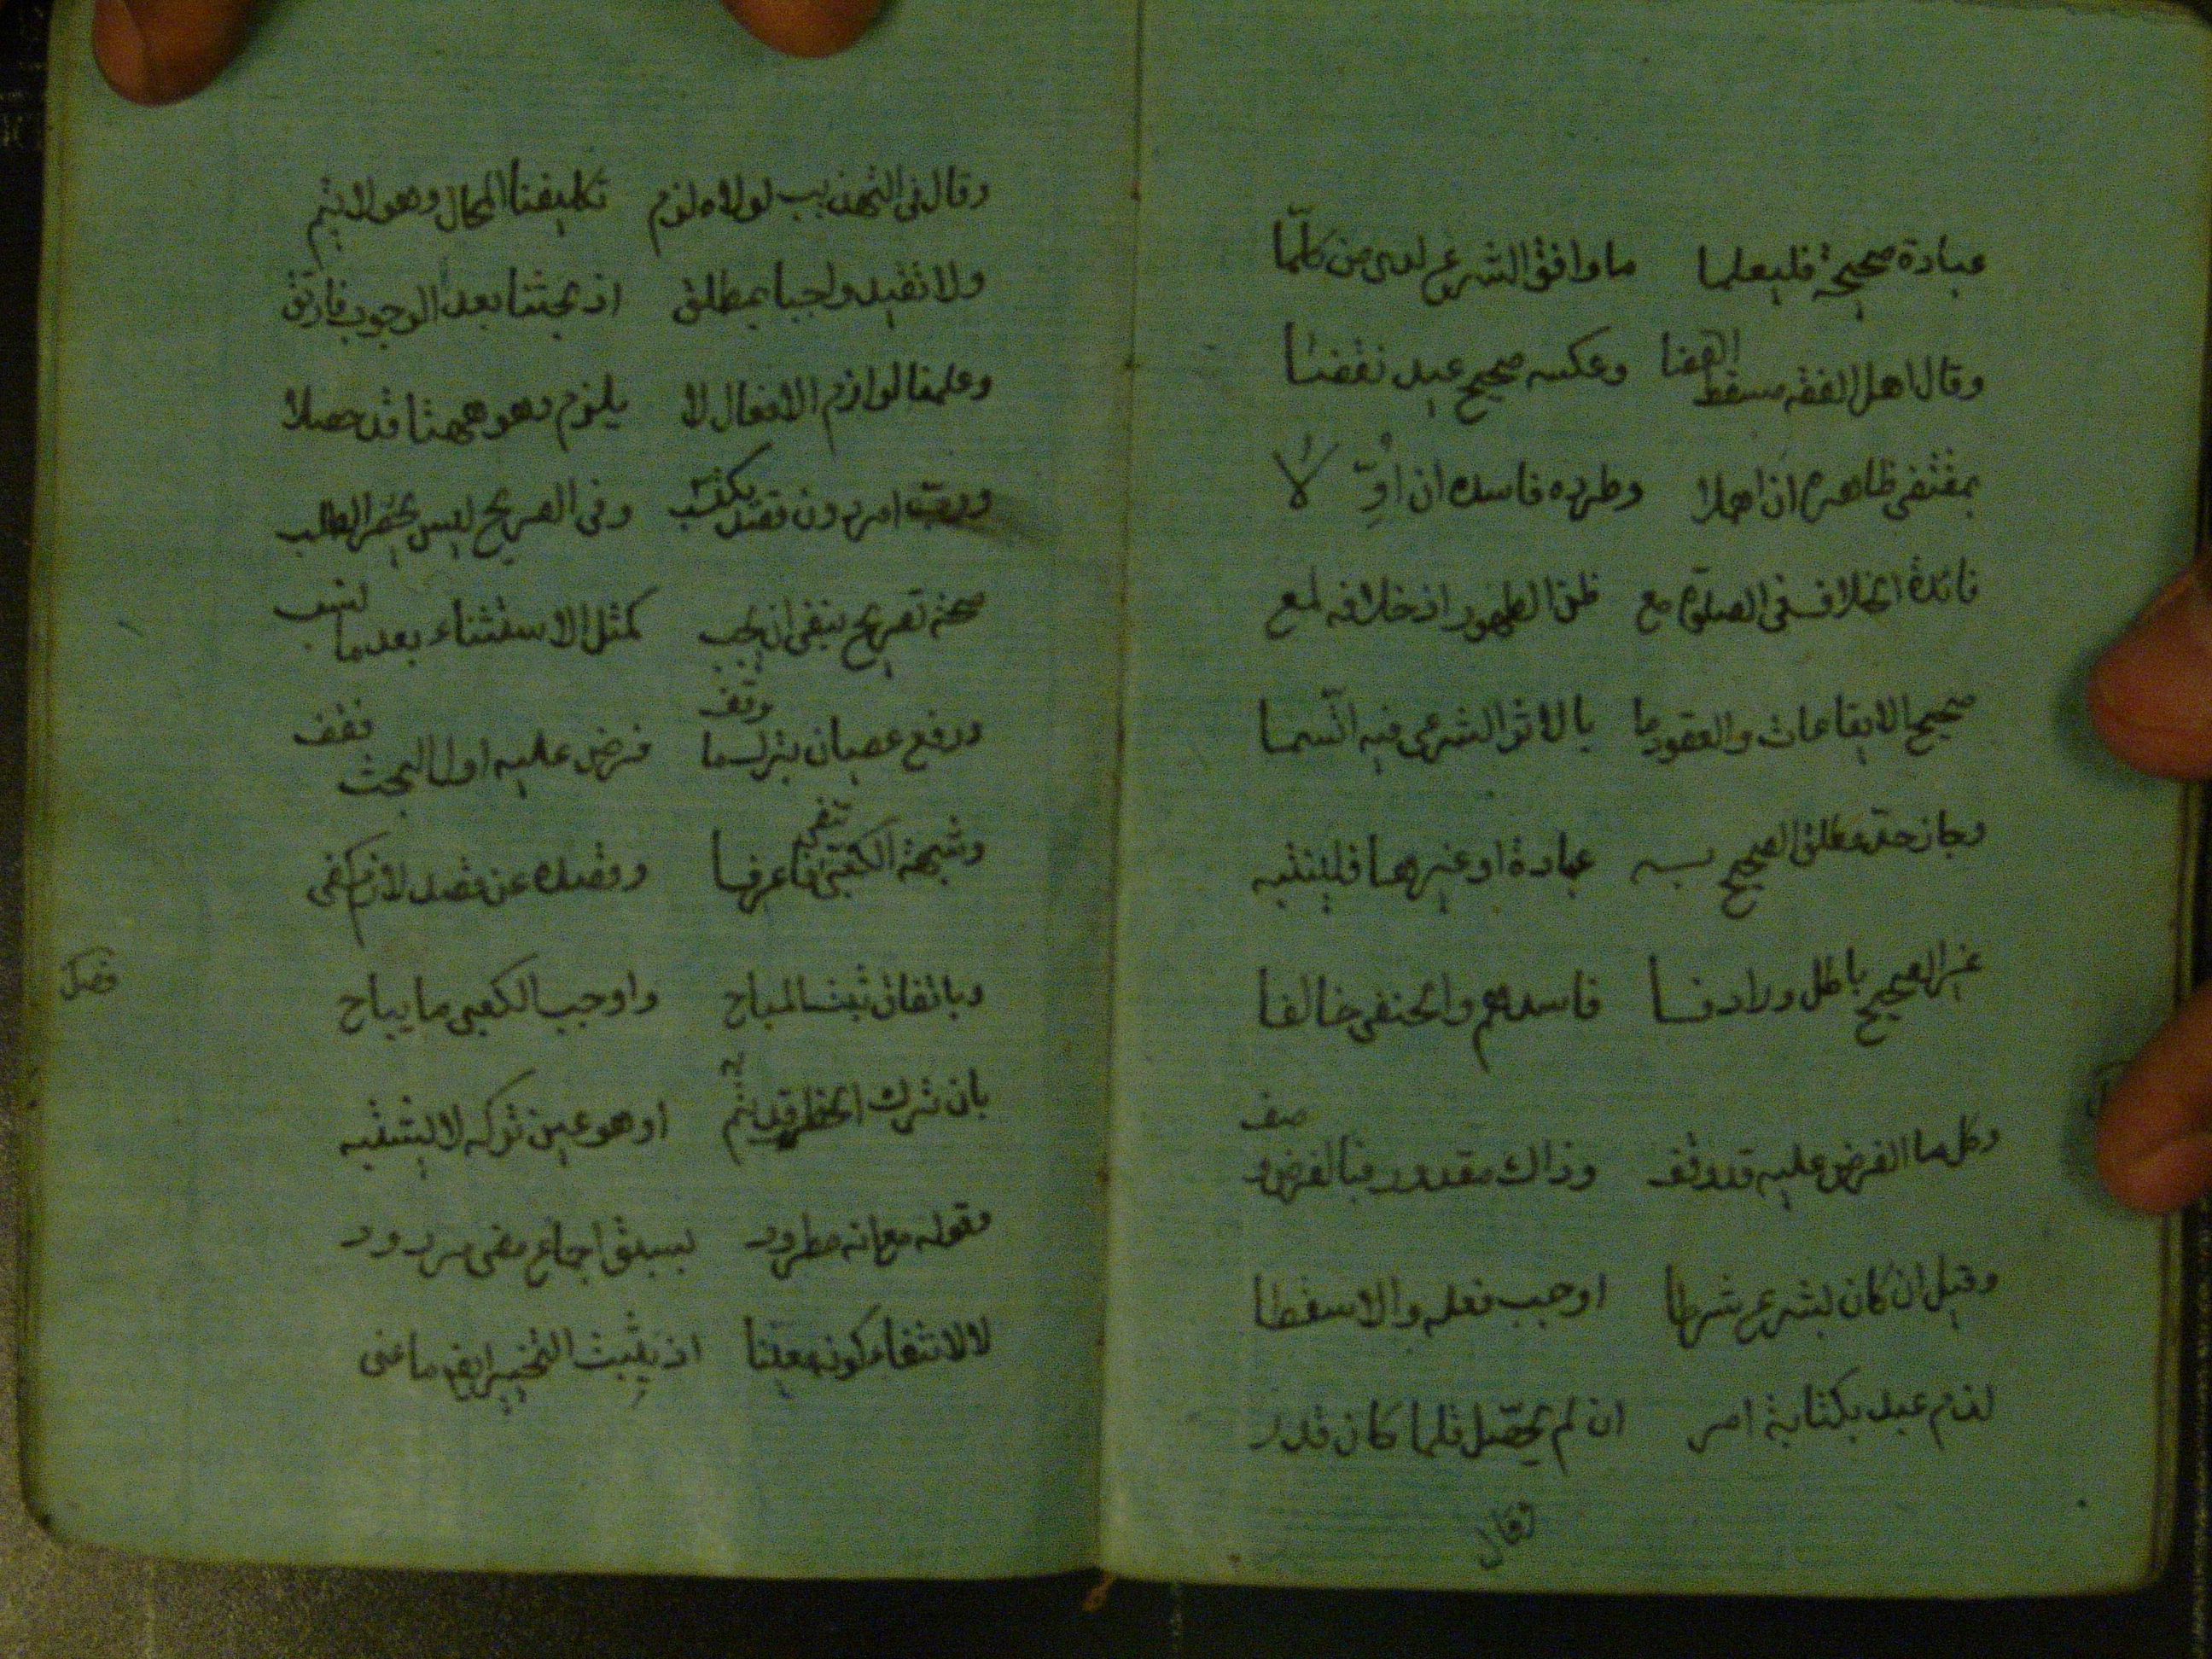 عبادة صحيحة فليعلما ما وافق الشرع لدى من كلما
وقال اهل الفقه مسقط القضا وعكسه صحيح عيد نقضا
بمقتضى ظاهره ان اهلا وطرده فاسده ان اوّلا
فائدة الخلاف فى الصلوة مع ظن الطهور اذ خلافه لمع
صحيح الايقاعات والعقود ما بالاثر الشرعى فيه اتسما
وجاز حد مطلق الصحيح به عبادة او غيرها فلينتبه
غير الصحيح باطل ورادفا فاسدهم والحنفى خالفا
وكل ما الفرض عليه قد وقف وذاك مقدور فبالفرض وصف
وقيل ان كان لشرع شرطا اوجب فعله والا سقطا
لذم عبد بكتابة امر ان لم يحصّل قلما كان قدر
وقال
وقال فى التهذيب لولاه لزم تكليفنا المحال وهو لا يتم
ولا تقيد واجبا بمطلق اذ بحثنا بعد الوجوب فارتق
وعلمنا لوازم الافعال لا يلزم وهو ههنا قد حصلا
امر دون وفى الصريح ليس يحضر الطلب
صحة تصريح بنفى ان يجب كمثل الاستثناء بعدما نسب
ورفع عصيان بترك ما وقف فرض عليه اول البحث فقف
وشبهة الكعبى فاعرفا وقصده عن قصد لازم كفى
فصل
وباتفاق ثبت المباح واوجب الكعبى ما يباح
بان ترك الحظر قد يتم به او هو عين تركه لا يشتبه
وقوله مع انه مطرود بسبق اجماع مضى مردود
لا لانتفاء كونه معينا اذ يثبت التخيير ايض ما عنى